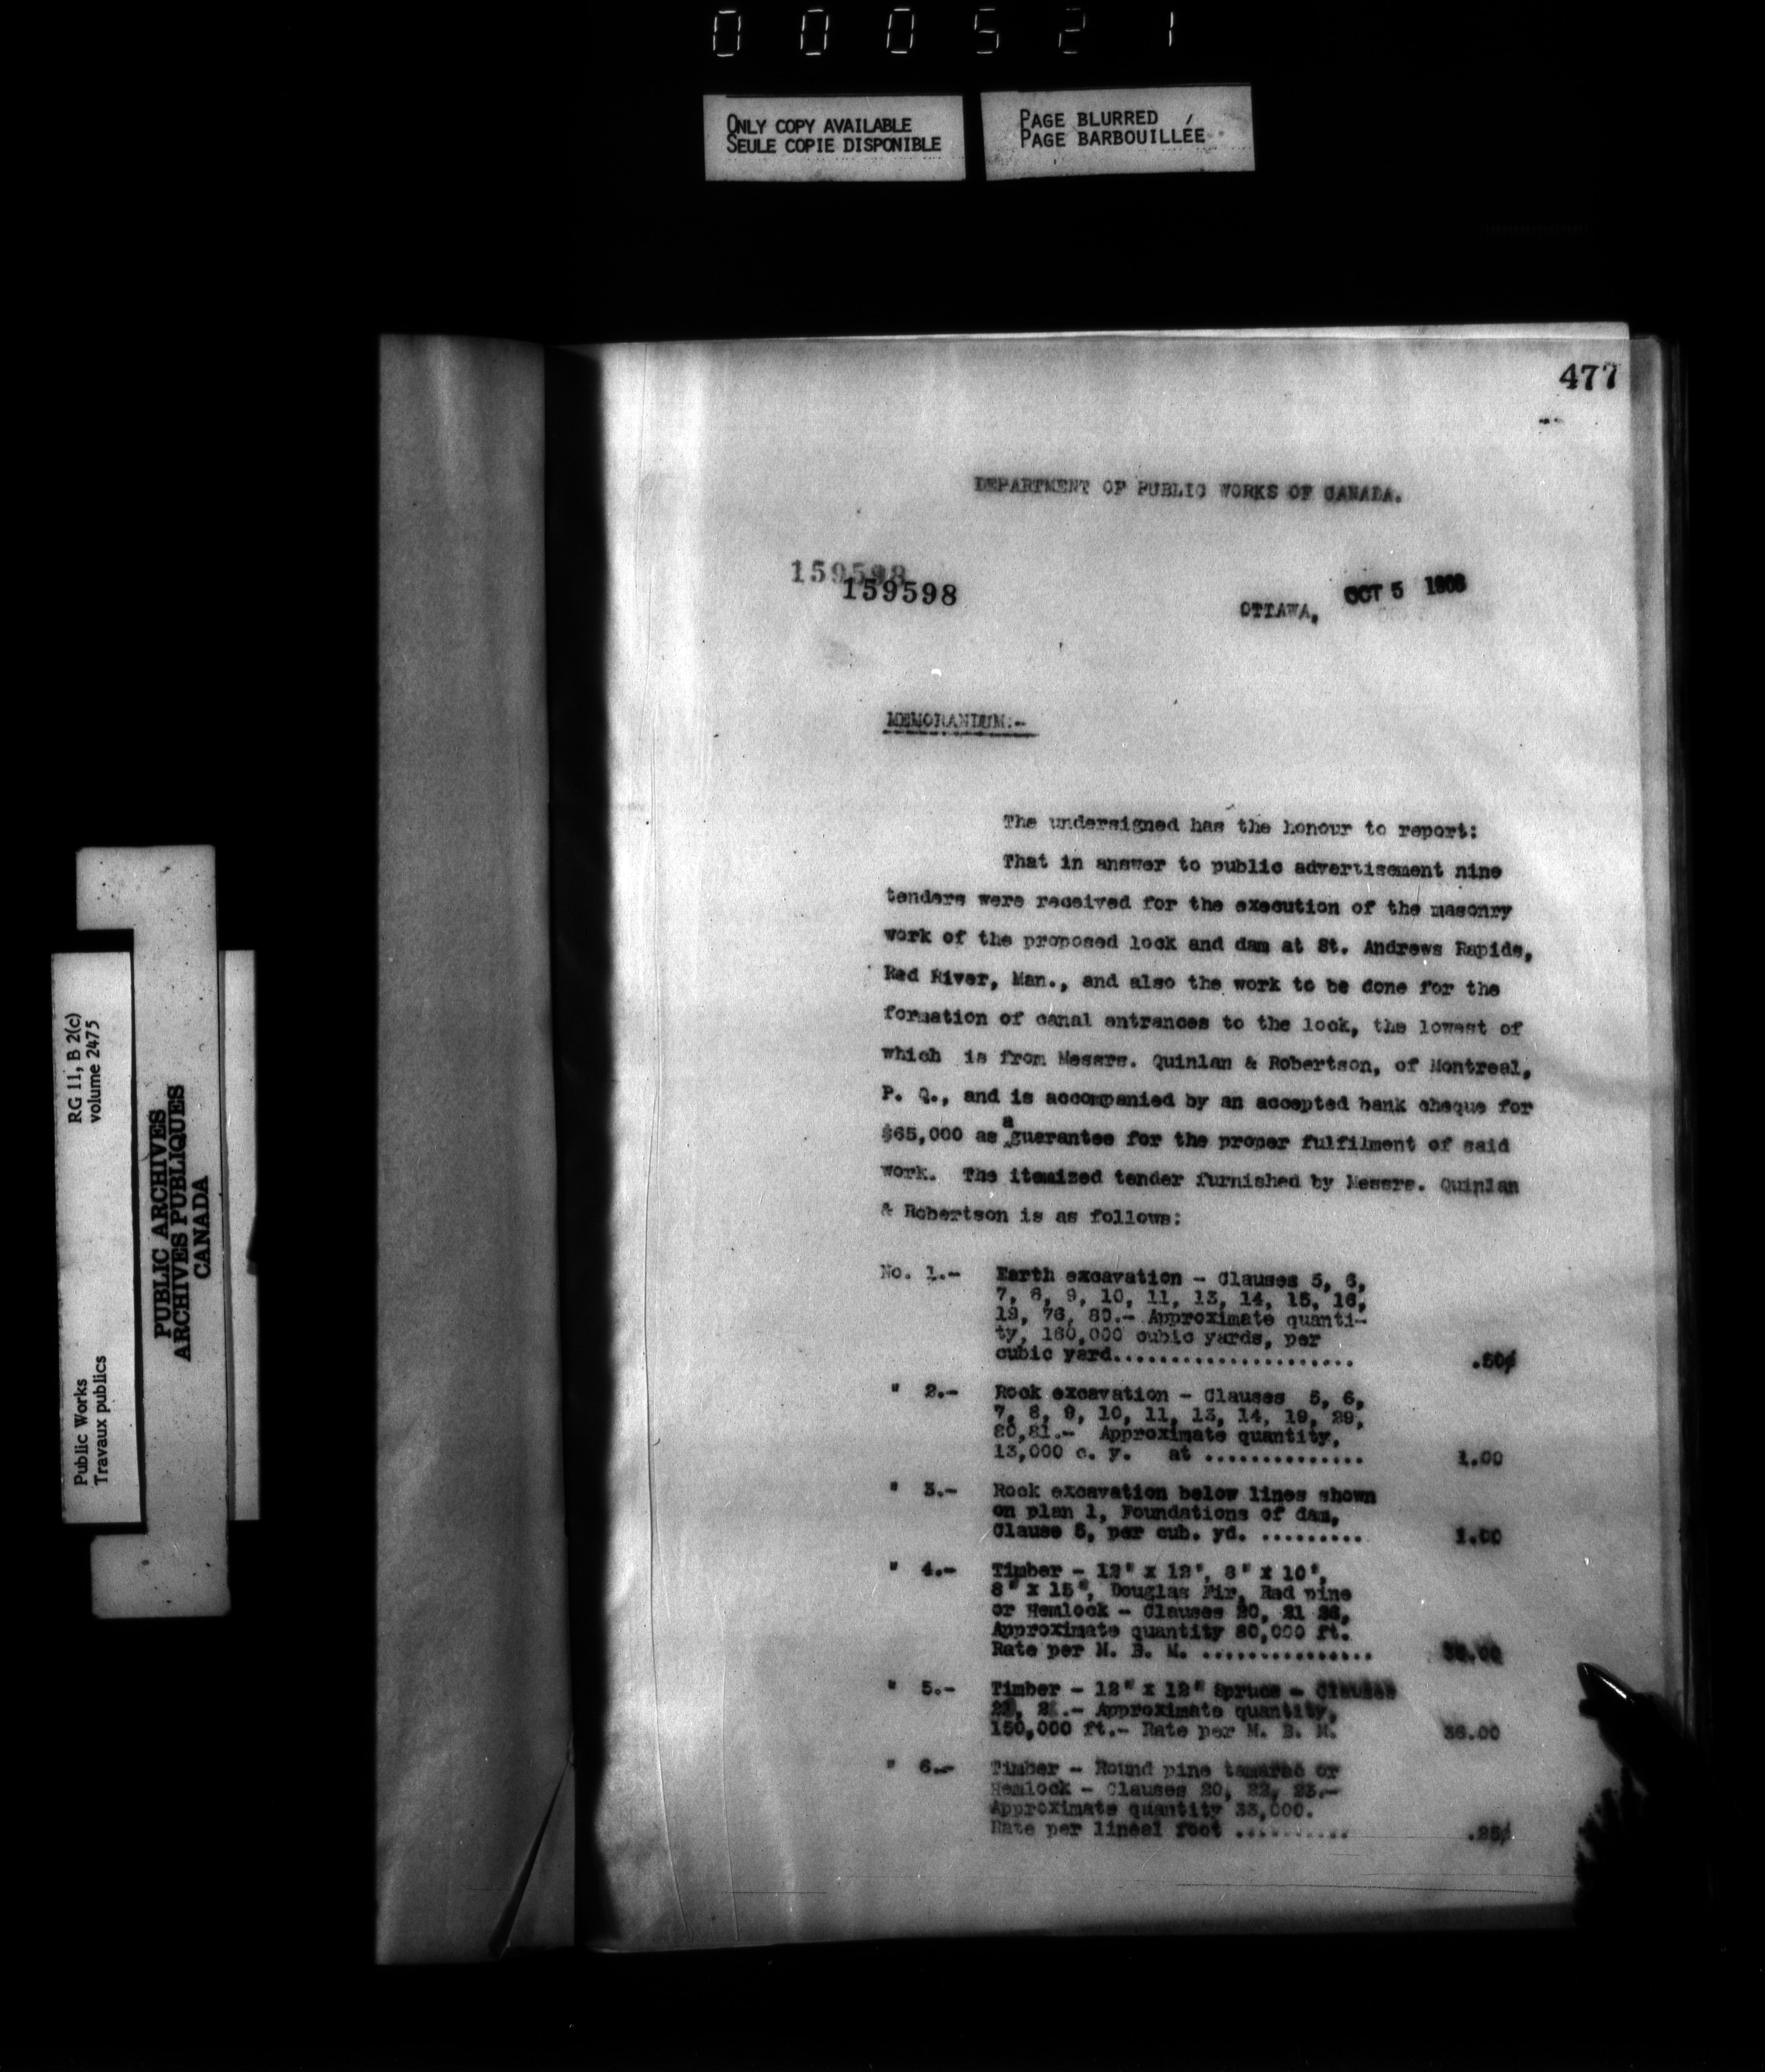 000521
ONLY COPY AVAILABLE
SEULE COPIE DISPONIBLE
PAGE BLURRED
PAGE BARBOUILLÉE
477
DEPARTMENT OF PUBLIC WORKS OF CANADA.
159598
159598
OTTAWA, OCT 5
MEMORANDUM:-
The undersigned has the honour to report:
That in answer to public advertisement nine
tenders were received for the execution of the masonry
work of the proposed lock and dam at St. Andrews Rapids,
Red River, Man., and also the work to be done for the
formation of canal entrances to the lock, the lowest of
which is from Messrs. Quinlan & Robertson, of Montreal,
P. Q., and is accompanied by an accepted bank cheque for
$65,000 as a guarantee for the proper fulfilment of said
work. The itemized tender furnished by Messrs. Quinlan
& Robertson is as follows:
No. 1.- Earth excavation - Clauses 5, 6,
7, 8, 9, 10, 11, 13, 14, 15, 16,
19, 76, 80.- Approximate quanti-
ty, 160,000 cubic yards, per
cubic yard..................... .50¢
" 2.- Rock excavation - Clauses 5, 6,
7, 8, 9, 10, 11, 13, 14, 19, 29,
80,81.- Approximate quantity,
13,000 c. y. at .............. 1.00
" 3.- Rock excavation below lines shown
on plan 1, Foundations of dam,
Clause 5, per cub. yd. ......... 1.00
" 4.- Timber - 12" x 12", 8" x 10",
8" x 15", Douglas Fir, Red pine
or Hemlock - Clauses 20, 21
Approximate quantity 80,000 ft.
Rate per M. B. M. ...............
" 5.- Timber - 12" x 12" Spruce - Clauses
Approximate quantity,
150,000 ft.- Rate per M. B. M. 36.00
" 6.- Timber - Round pine tamarac or
Hemlock - Clauses 20, 22, 23.-
Approximate quantity 33,000.
Rate per lineal foot .......... .25¢
RG 11, B 2(c)
volume 2475
Public Works
Travaux publics
PUBLIC ARCHIVES
ARCHIVES PUBLIQUES
CANADA